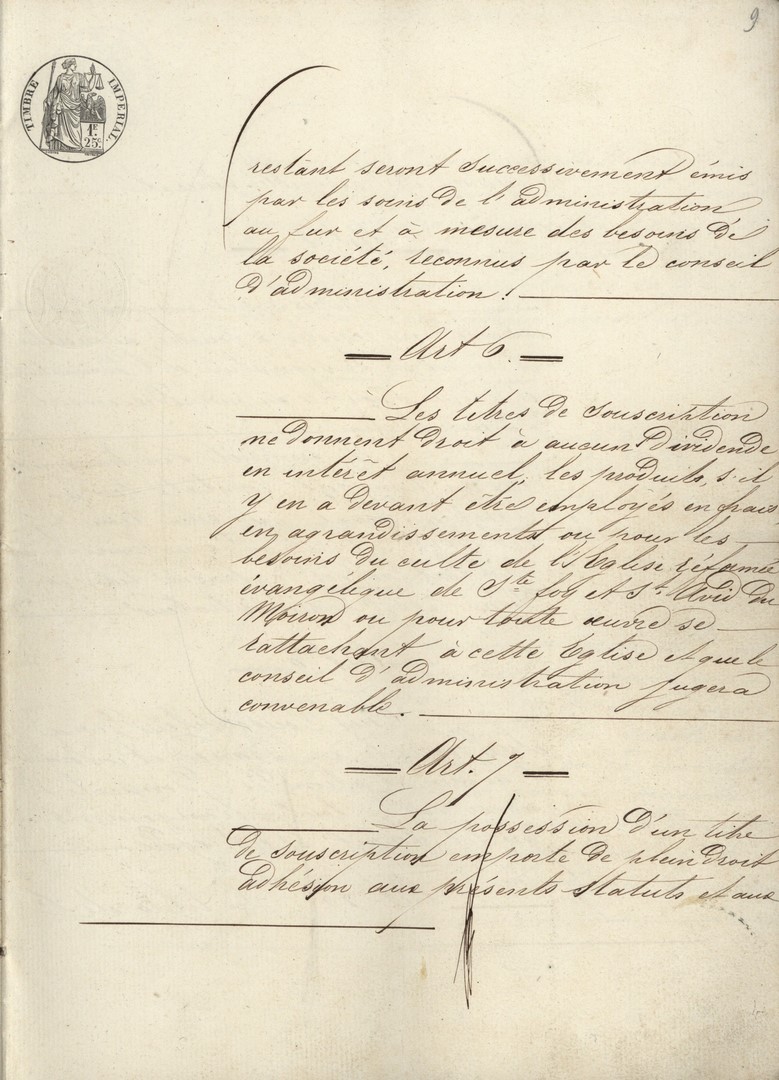 9
TIMBRE IMPERIAL
1F.
25c.
restant seront successivement émis
par les soins de l'administration
au fur et à mesure des besoins de
la société, reconnus par le conseil
d'administration.
Art 6.
Les titres de souscription
ne donnent droit à aucun dividende
en intérêt annuel, les produits, s'il
y en a devant être employés en frais
en agrandissements ou pour les
besoins du culte de l'Eglise réformée
évangélique de Ste foy et St Avid du
Moiron ou pour toute œuvre se
rattachant à cette Eglise et que le
conseil d'administration jugera
convenable.
Art. 7
La possession d'un titre
de souscription emporte de plein droit
adhésion aux présents statuts et aux